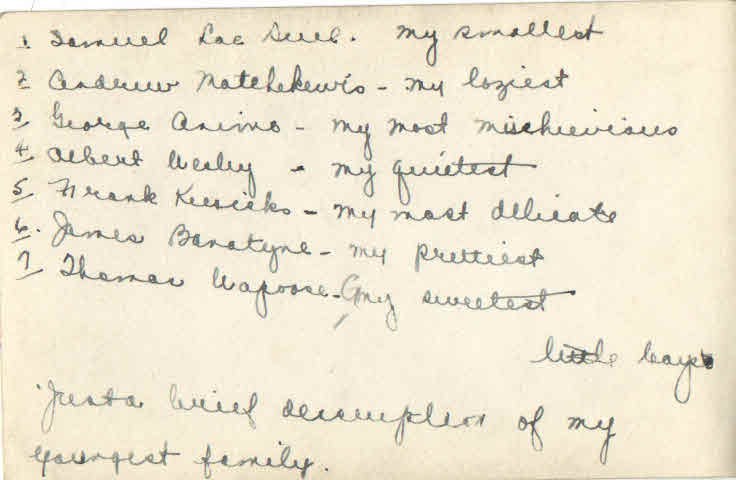 1 Samuel Lac Seul. My smallest
2 Andrew Matchekewis - my laziest
3 George Animo - my most mischievious
4 Albert Wesley - my quietest
5 Frank Keesicks - my most delicate
6. James Banatyne - my prettiest
7 Thomas Wapoose - my sweetest
little boys
Just a brief description of my
youngest family.